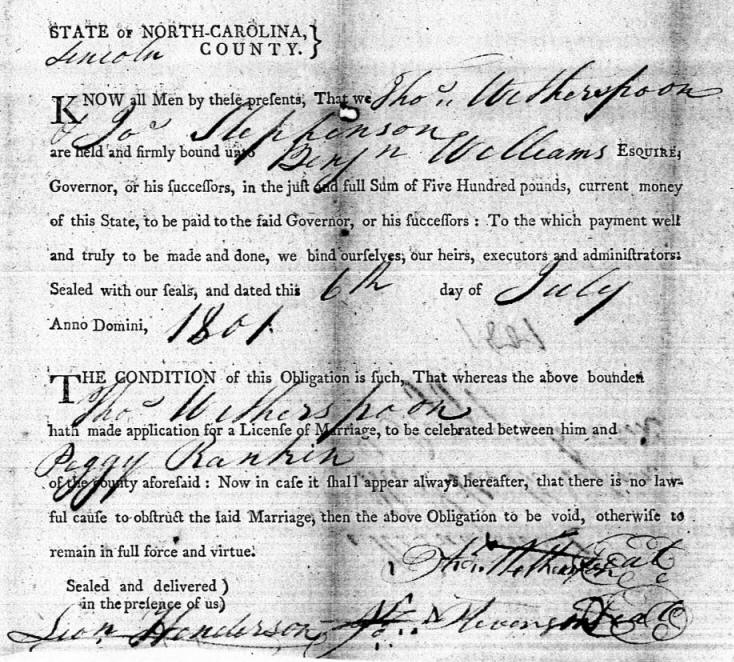 STATE OF NORTH-CAROLINA,
Lincoln COUNTY.
KNOW all Men by these presents, That we Thos. Witherspoon
& Jos. Stephenson
are held and firmly bound unto Benjn Williams ESQUIRE,
Governor, or his successors, in the just and full Sum of Five Hundred pounds, current money
of this State, to be paid to the said Governor, or his successors : To the which payment well
and truly to be made and done, we bind ourselves, our heirs, executors and administrators:
Sealed with our seals, and dated this 6th day of July
Anno Domini, 1801.
1801
THE CONDITION of this Obligation is such, That whereas the above bounden
Thos. Witherspoon
hath made application for a License of Marriage, to be celebrated between him and
Peggy Rankin
of the county aforesaid : Now in case it shall appear always hereafter, that there is no law-
ful cause to obstruct the said Marriage, then the above Obligation to be void, otherwise to
remain in full force and virtue.
Thos. Witherspoon Seal
Sealed and delivered )
in the presence of us)
Seal
Henderson